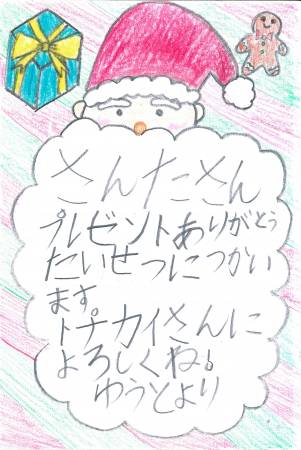 さんたさん
プレゼントありがとう
たいせつにつかい
ます。
トナカイさんに
よろしくね。
ゆうとより